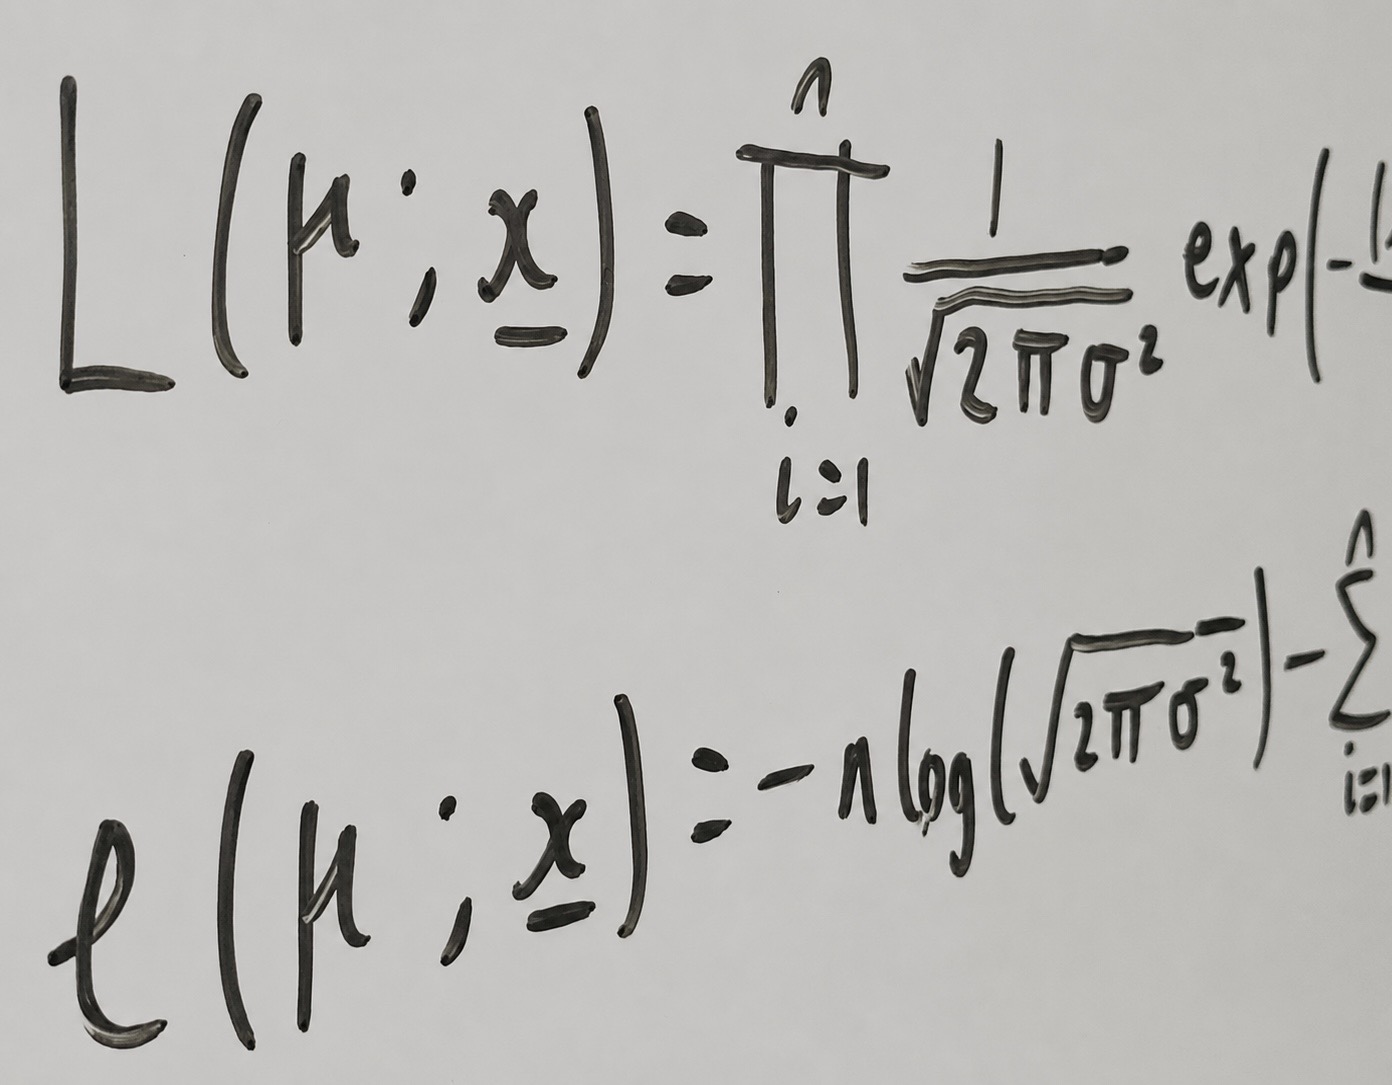 L(μ; x̲) = ∏ᵢ₌₁ⁿ 1/√(2πσ²) exp(-
ℓ(μ; x̲) = -n log(√(2πσ²)) - ∑ᵢ₌₁ⁿ